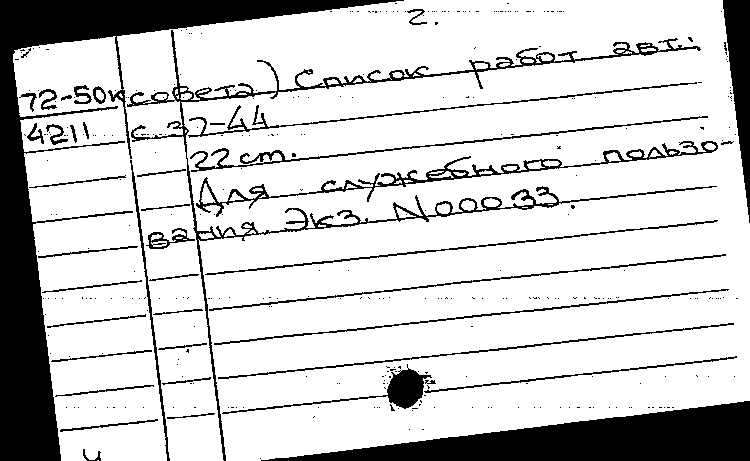 2.
72-50к совета) Список работ авт.:
4211 с. 37-44
22 cm.
Для служебного пользо-
вания. Экз. N00033.